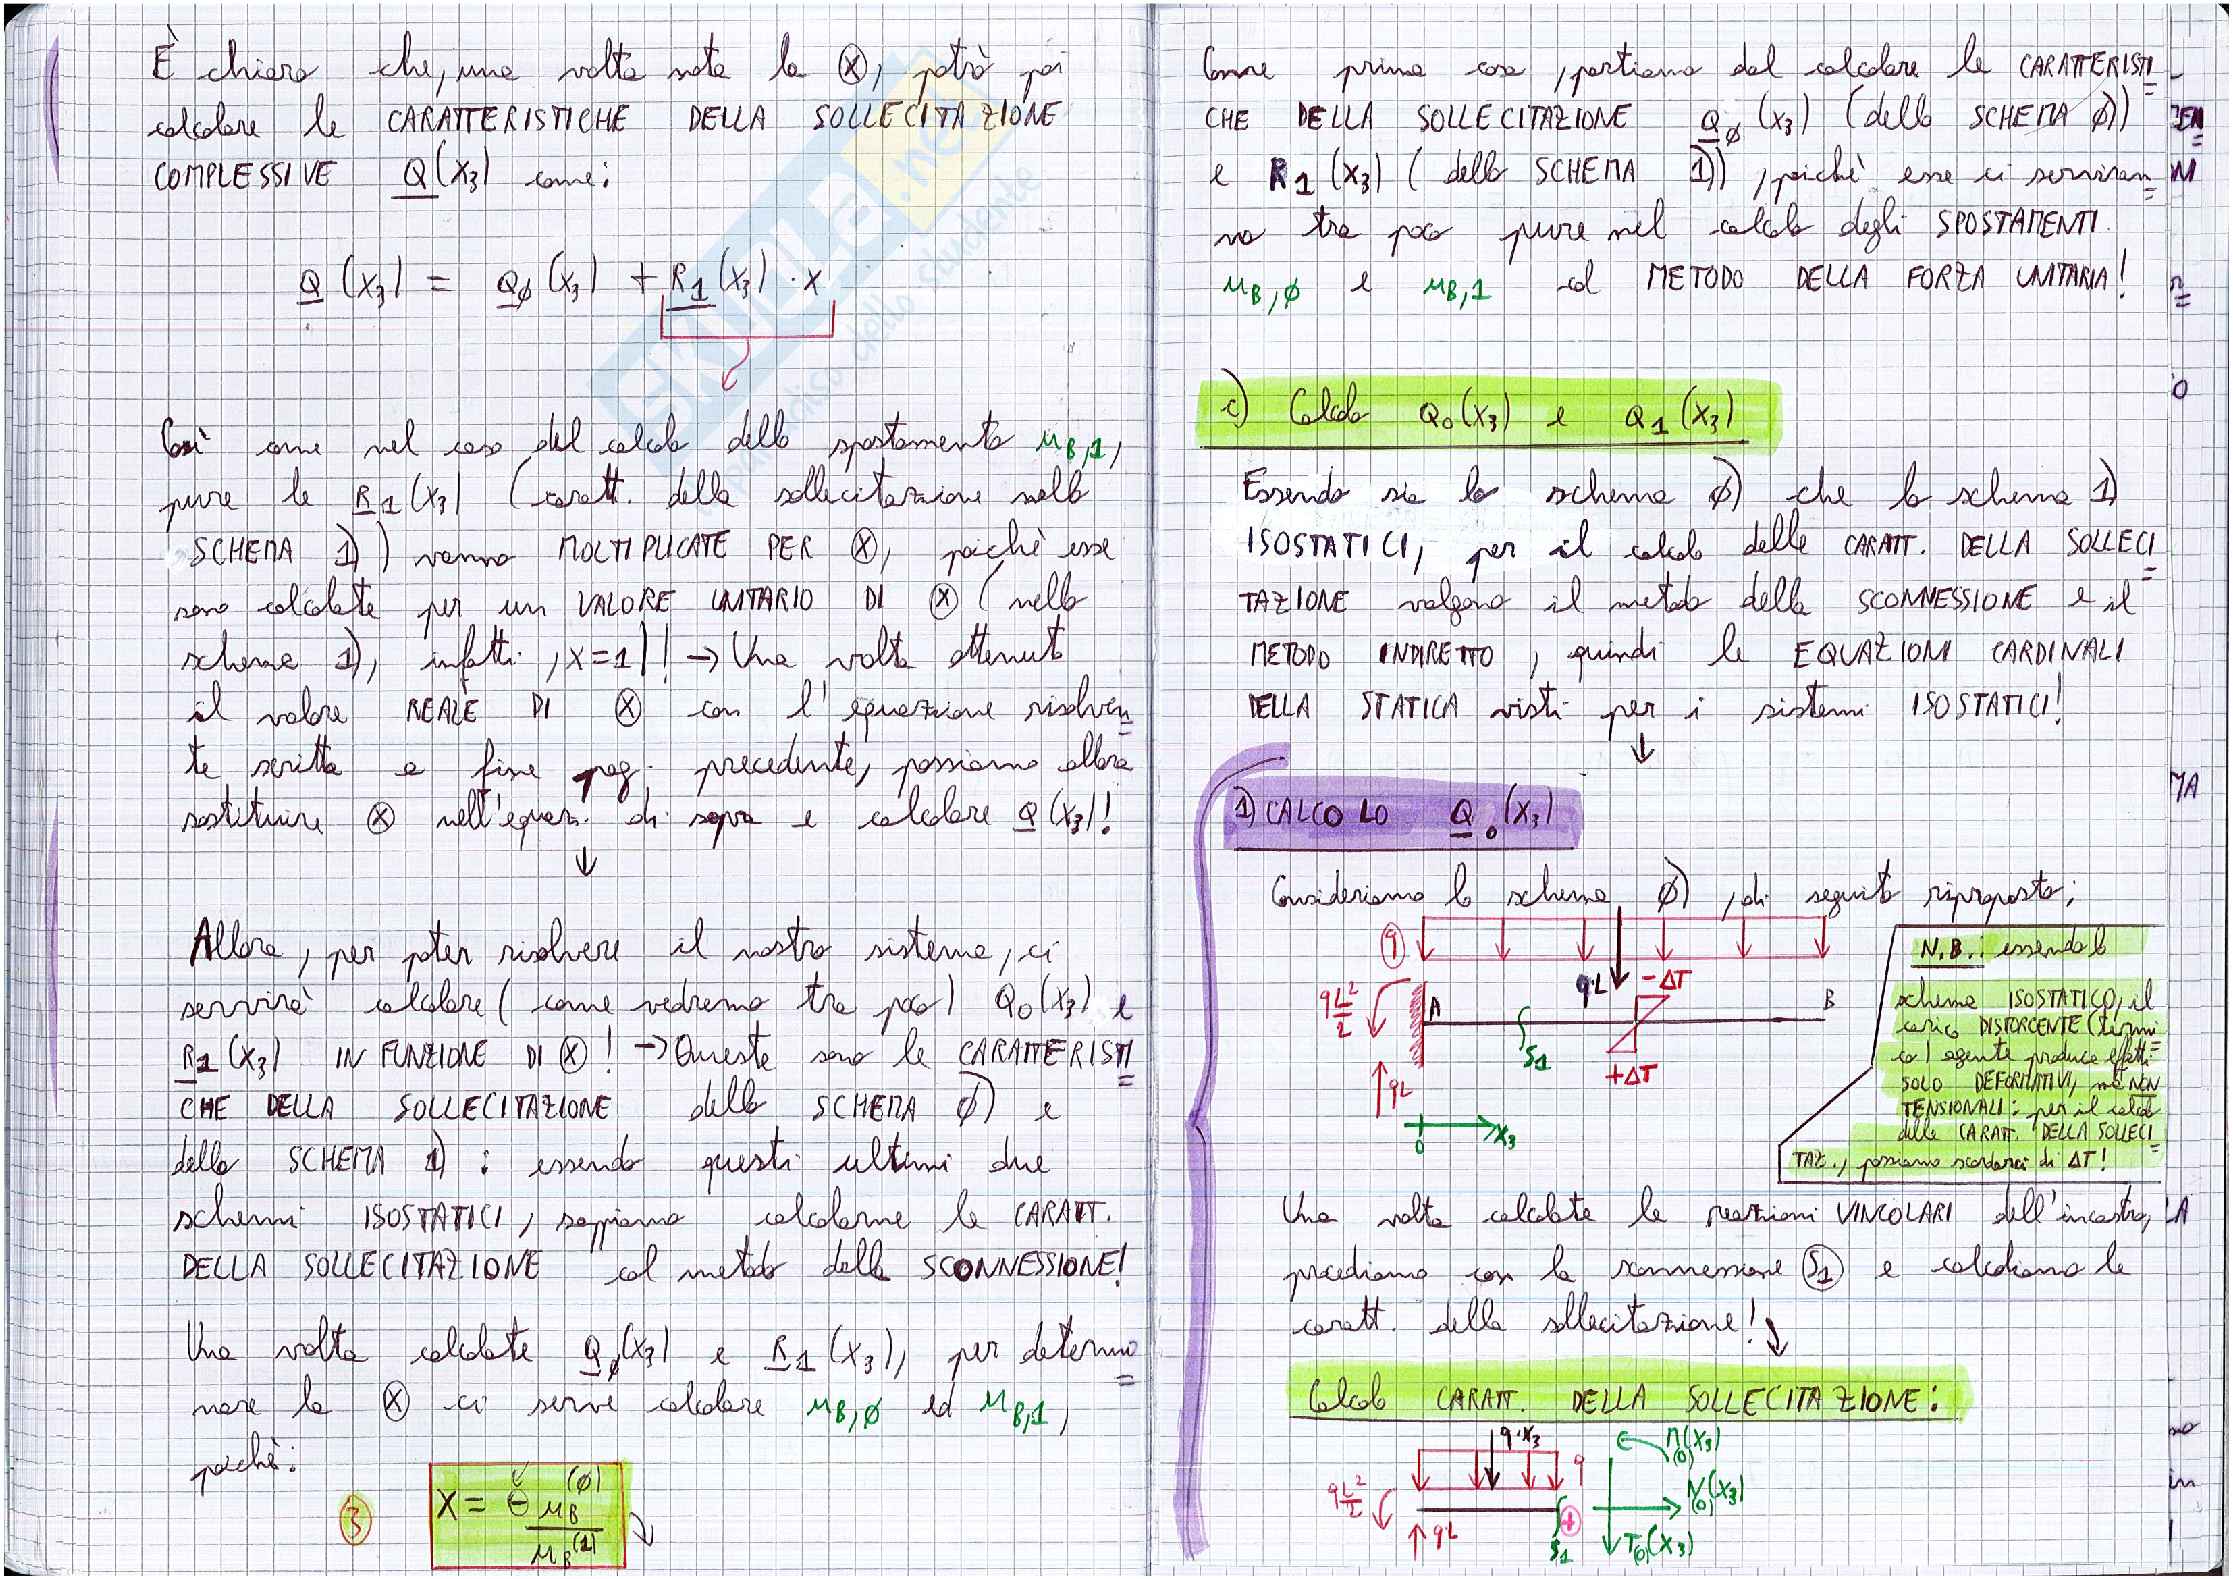 È chiaro che, una volta nota la Ⓧ, potrò poi
calcolare le CARATTERISTICHE DELLA SOLLECITAZIONE
COMPLESSIVE Q(X₃) come:
Q(X₃) = Qφ(X₃) + R₁(X₃)·X
Così come nel caso del calcolo dello spostamento uB,1,
pure le R₁(X₃) (caratt. della sollecitazione nello
SCHEMA 1)) vanno MOLTIPLICATE PER Ⓧ, poichè esse
sono calcolate per un VALORE UNITARIO DI Ⓧ (nello
schema 1), infatti, X=1)! → Una volta ottenuto
il valore REALE DI Ⓧ con l'equazione risolven
te scritta a fine pag. precedente, possiamo allora
sostituire Ⓧ nell'equaz. di sopra e calcolare Q(X₃)!
↓
Allora, per poter risolvere il nostro sistema, ci
servirà calcolare (come vedremo tra poco) Q₀(X₃) e
R₁(X₃) IN FUNZIONE DI Ⓧ! → Queste sono le CARATTERISTI
CHE DELLA SOLLECITAZIONE dello SCHEMA φ) e
dello SCHEMA 1): essendo questi ultimi due
schemi ISOSTATICI, sappiamo calcolarne le CARATT.
DELLA SOLLECITAZIONE col metodo della SCONNESSIONE!
Una volta calcolate Qφ(X₃) e R₁(X₃), per determi
nare la Ⓧ ci serve calcolare uB,φ ed uB,1,
poichè:
③ X = ⊖ uB(φ) / uB(1)
Come prima cosa, partiamo dal calcolare le CARATTERISTI
CHE DELLA SOLLECITAZIONE Qφ(X₃) (dello SCHEMA φ))
e R₁(X₃) (dello SCHEMA 1)), poichè esse ci serviran
no tra poco pure nel calcolo degli SPOSTAMENTI
uB,φ e uB,1 col METODO DELLA FORZA UNITARIA!
c) Calcolo Q₀(X₃) e Q₁(X₃)
Essendo sia lo schema φ) che lo schema 1)
ISOSTATICI, per il calcolo delle CARATT. DELLA SOLLECI
TAZIONE valgono il metodo della SCONNESSIONE e il
METODO INDIRETTO, quindi le EQUAZIONI CARDINALI
DELLA STATICA visti per i sistemi ISOSTATICI!
↓
1) CALCOLO Q₀(X₃)
Consideriamo lo schema φ), di seguito riproposto:
q
q·L
-ΔT
qL²/2
A
B
S₁
+ΔT
qL
0
X₃
N.B.: essendo lo
schema ISOSTATICO, il
carico DISTORCENTE (termi
co) agente produce effetti
SOLO DEFORMATIVI, ma NON
TENSIONALI: per il calcolo
delle CARATT. DELLA SOLLECI
TAZ., possiamo scordarci di ΔT!
Una volta calcolate le reazioni VINCOLARI dell'incastro,
procediamo con la sconnessione S₁ e calcoliamo le
caratt. della sollecitazione!
Calcolo CARATT. DELLA SOLLECITAZIONE:
q·X₃
q
qL²/2
qL
S₁
+
M(0)(X₃)
N(0)(X₃)
T(0)(X₃)
SKUOLA.net
paradiso dello studente